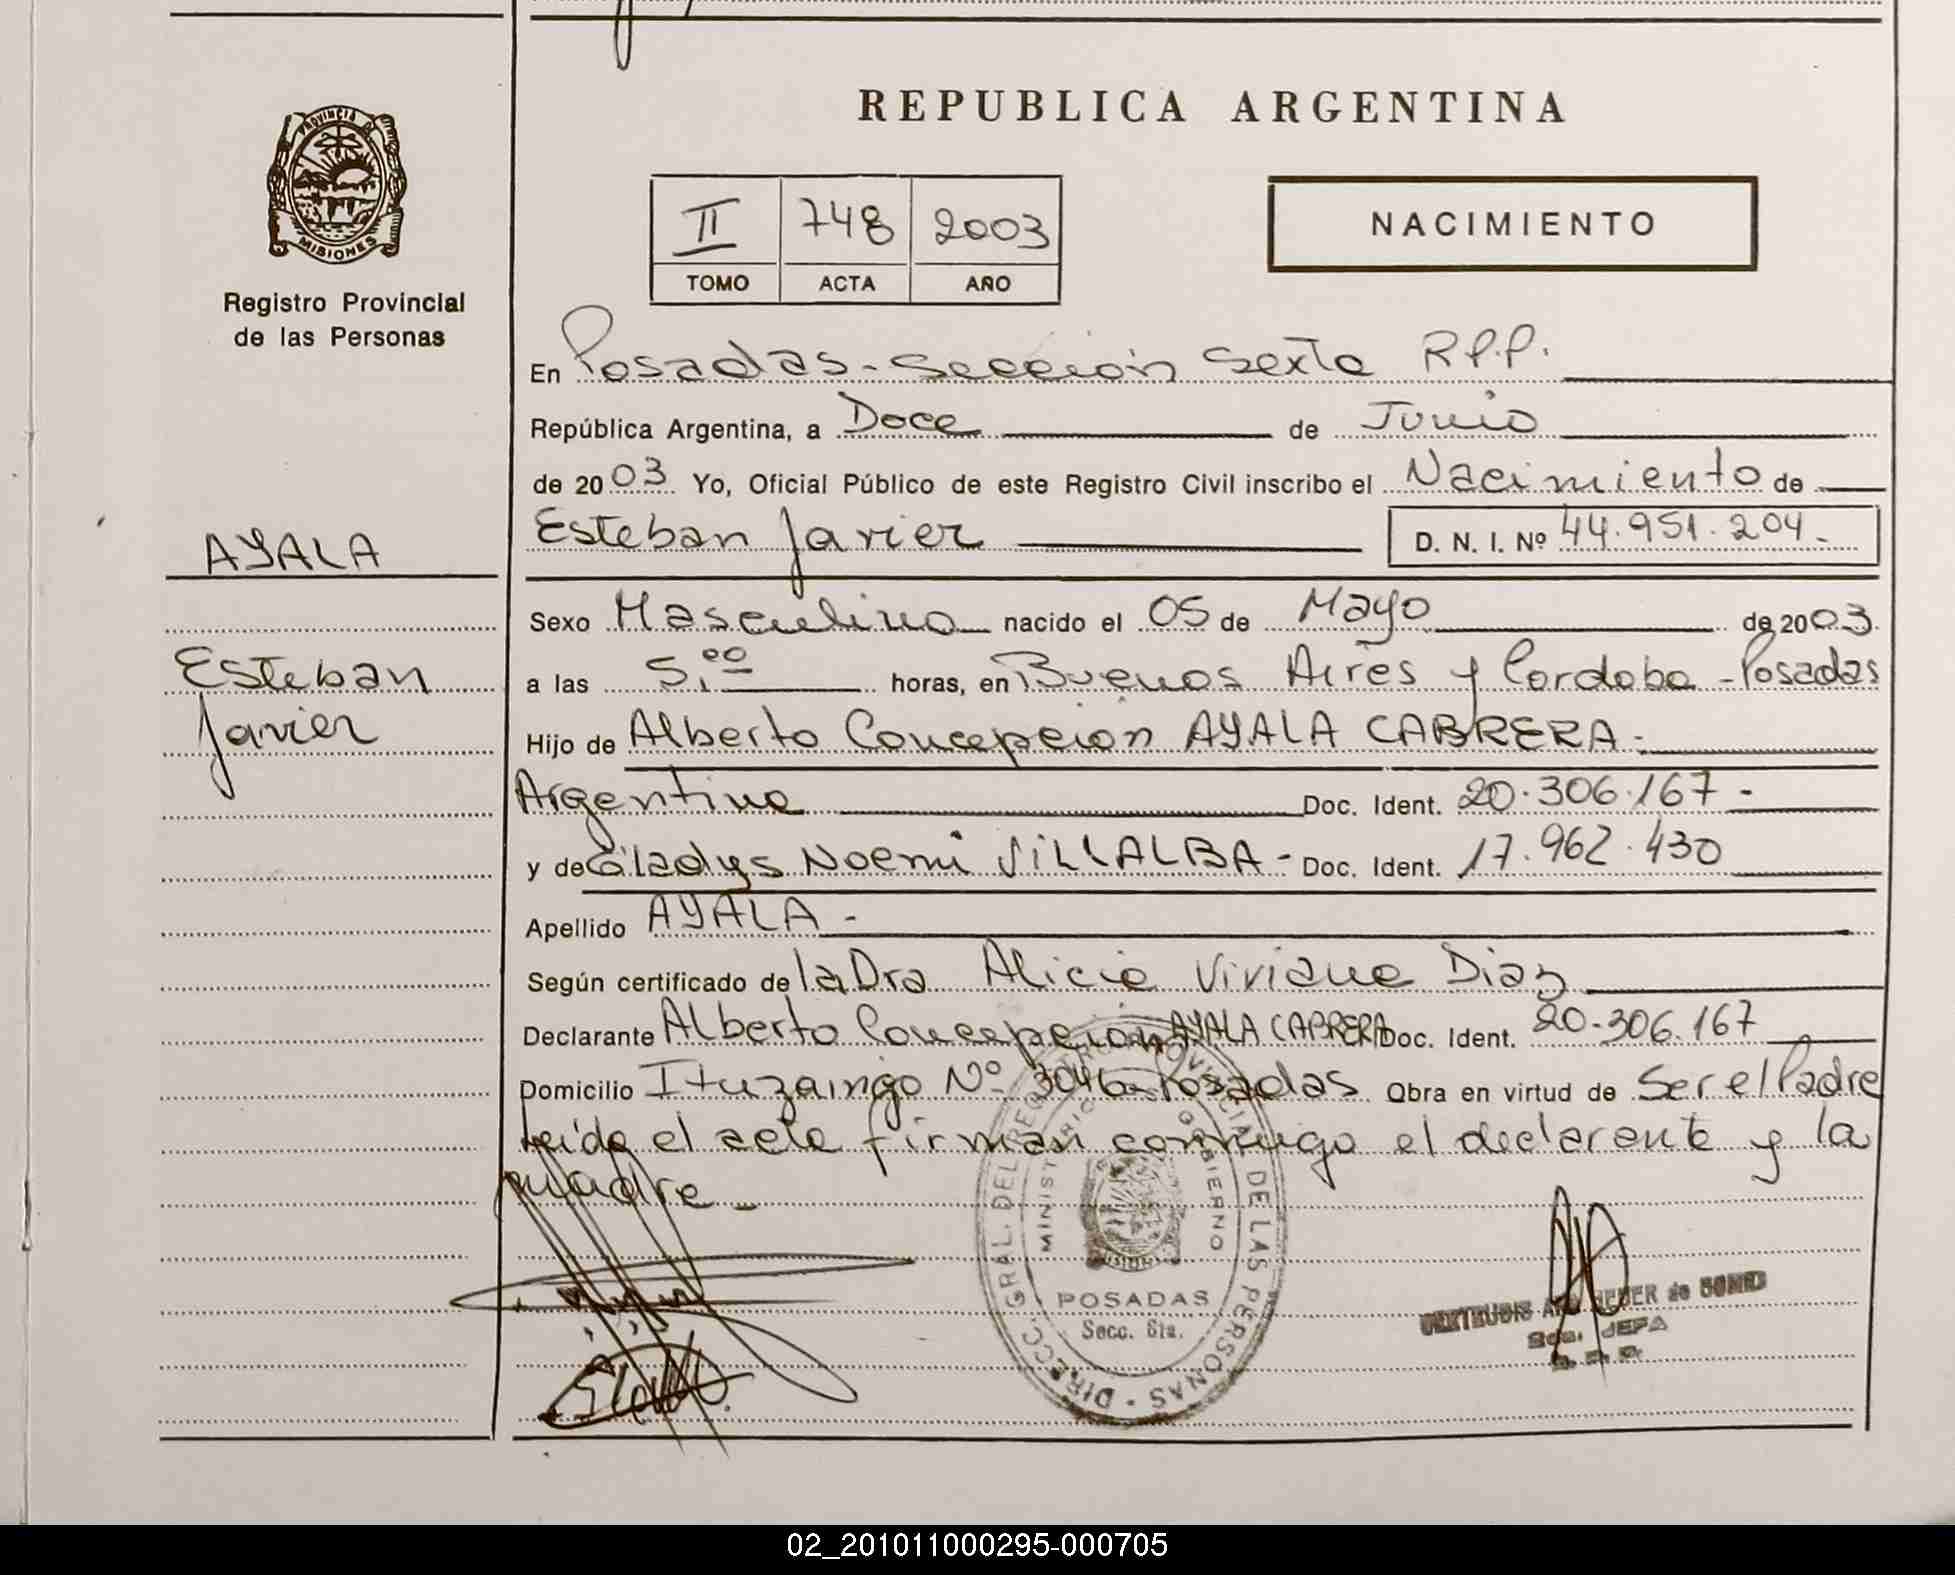 REPUBLICA ARGENTINA
PROVINCIA DE
MISIONES
Registro Provincial
de las Personas
II 748 2003
TOMO ACTA AÑO
NACIMIENTO
En Posadas - Sección Sexta R.P.P.
República Argentina, a Doce de Junio
de 2003 Yo, Oficial Público de este Registro Civil inscribo el Nacimiento de
Esteban Javier D. N. I. Nº 44.951.204.-
AYALA
Esteban
Javier
Sexo Masculino nacido el 05 de Mayo de 2003.
a las 5,00 horas, en Buenos Aires y Cordoba - Posadas
Hijo de Alberto Concepción AYALA CABRERA.-
Argentino Doc. Ident. 20.306.167 -
y de Gladys Noemi VILLALBA - Doc. Ident. 17.962.430
Apellido AYALA -
Según certificado de la Dra Alicia Viviana Diaz
Declarante Alberto Concepción AYALA CABRERA Doc. Ident. 20.306.167
Domicilio Ituzaingo Nº 3046 - Posadas Obra en virtud de Ser el Padre
Leída el acta firman conmigo el declarante y la
madre -
DIRECC. GRAL. DEL REGISTRO PROVINCIAL DE LAS PERSONAS
MINISTERIO GOBIERNO
POSADAS
Secc. 6ta.
GERTRUDIS de
JEFA
02_201011000295-000705